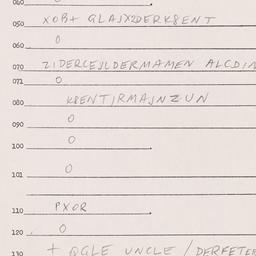 040
050 XOB+ GLAJXZDERK8ENT
060 0
070 ZIDERCEJLDERMAMEN ALCDIN
071 0
080 K8ENTJRMAJNZUN
090 0
100 0
101 0
110 PXOR
120 0
130 + QGLE UNCLE / DERFETER